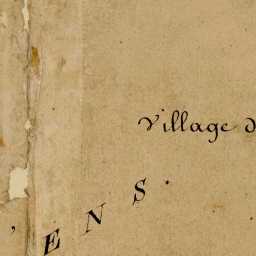 Village d
, ENS.